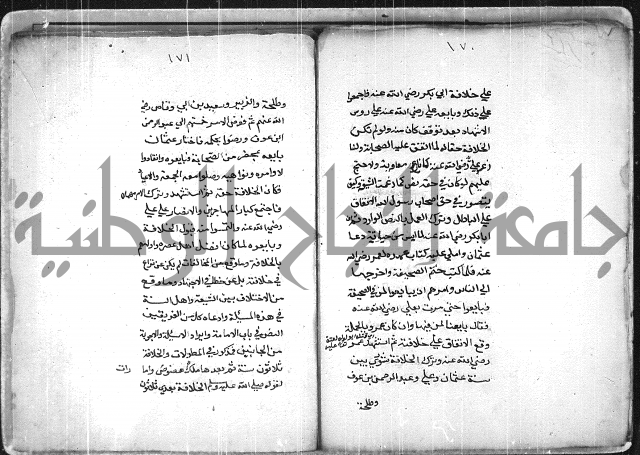 ١٧٠
على خلافة ابي بكر رضي الله عنه فاجمعوا
على ذلك وبايعه علي رضي الله عنه على روس
الاشهاد بعد توقف كان منه ولو لم تكن
الخلافة حقا له لما اتفق عليه الصحابة ولنا
زعه علي رضي الله عنه كما نازع معاوية ولاحتج
عليهم لو كان في حقه نص كما زعمت الشيعة وكيف
يتصور في حق اصحاب رسول الله الاتفاق
على الباطل وترك العمل بالنص الوارد ثم ان
ابا بكر رضي الله عنه لما ايس من حياته دعا
عثمان واملى عليه كتاب عهده لعمر رضي الله
عنه فلما كتب ختم الصحيفة واخرجها
الى الناس وامرهم ان يبايعوا لمن في الصحيفة
فبايعوا حتى مرت بعلي رضي الله عنه
فقال بايعنا لمن فيها وان كان عمر وبالجملة
وقع الاتفاق على خلافته ثم استشهد عمر
رضي الله عنه وترك الخلافة شورى بين
ستة عثمان وعلي وعبد الرحمن بن عوف
وطلحة
١٧١
وطلحة والزبير وسعد بن ابي وقاص رضي
الله عنهم ثم فوض الامر خمستهم الى عبد الرحمن
ابن عوف ورضوا بحكمه فاختار عثمان
بايعه بمحضر من الصحابة فبايعوه وانقادوا
لاوامره ونواهيه وصلوا معه الجمعة والاعياد
فكان اجماعا ثم استشهد وترك الامر مهملا
فاجتمع كبار المهاجرين والانصار على علي
رضي الله عنه والتمسوا منه قبول الخلافة
وبايعوه لما كان افضل اهل عصره واولاهم
بالخلافة وما وقع من المخالفات لم يكن عن نزاع
في خلافته بل عن خطأ في الاجتهاد وما وقع
من الاختلاف بين الشيعة واهل السنة
في هذه المسئلة وادعاء كل من الفريقين
النص في باب الامامة وايراد الاسئلة والاجوبة
من الجانبين فمذكور في المطولات والخلافة
ثلاثون سنة ثم بعدها ملك عضوض وامارات
لقوله صلى الله عليه وسلم الخلافة بعدي ثلاثون
جامعة النجاح الوطنية